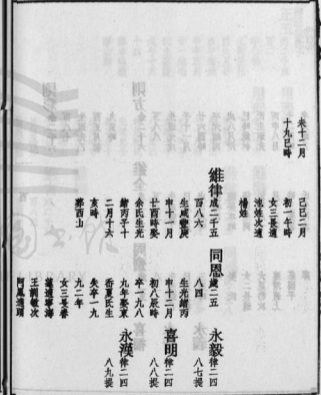 未十二月
十九巳時
己巳二月
初一午時
女三長適
池姓次適
楊姓
維律
成二子五
百八六
生咸豐庚
申十一月
廿酉時娶
余氏生光
緒丙子十
二月十六
亥時
葬西山
同恩
歲二五
八四
生光緒丙
申十二月
初八辰時
卒一九八
九年娶東
岳夏氏生
失卒一九
九二年
女三長春
蓮適寧海
王調敏次
阿鳳適頭
永毅
律二四
八七提
喜明
律二四
八八提
永漢
律二四
八九提